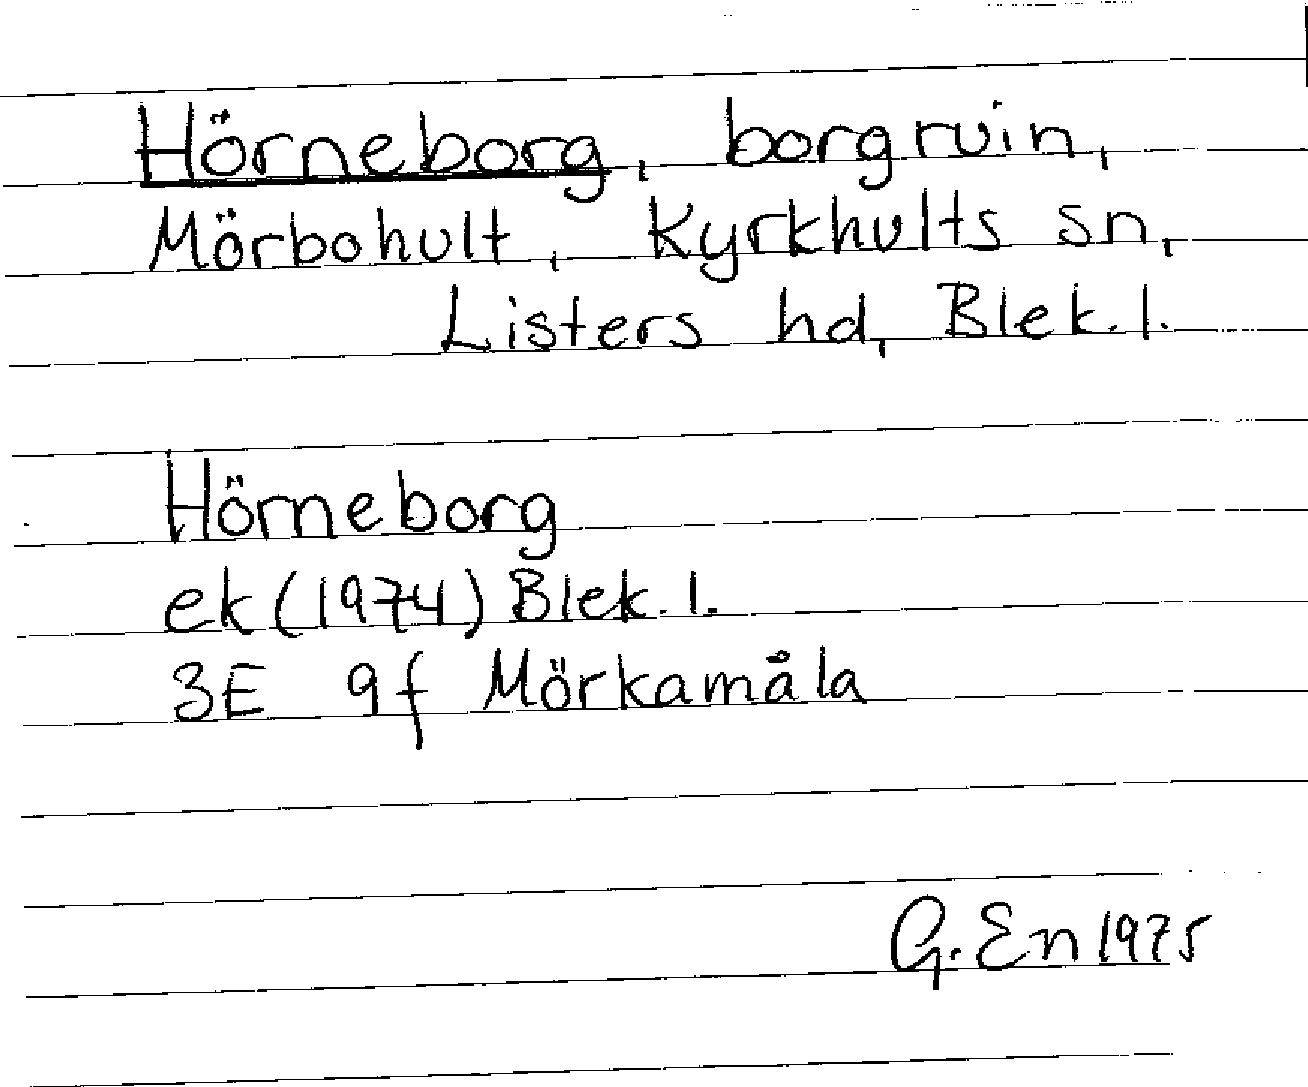 Hörneborg, borgruin,
Mörbohult, Kyrkhults sn,
Listers hd, Blek. l.
Hörneborg
ek (1974) Blek. l.
3E 9f Mörkamåla
G. En 1975